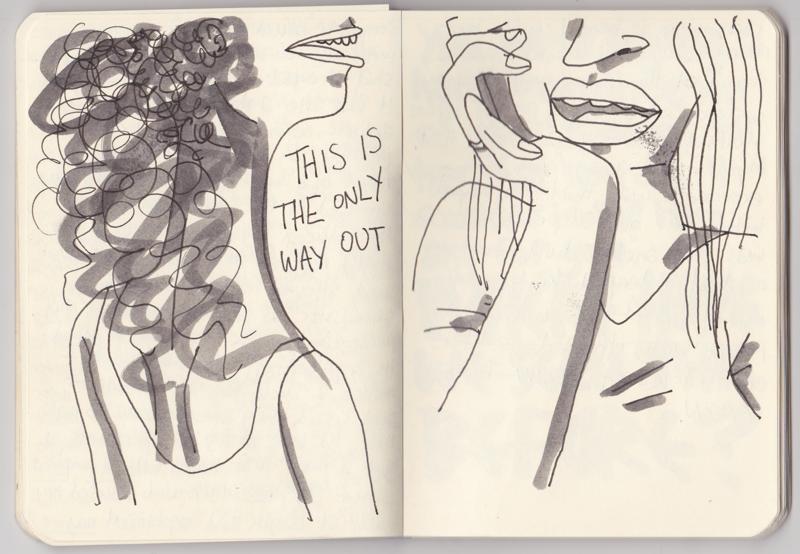 THIS IS
THE ONLY
WAY OUT